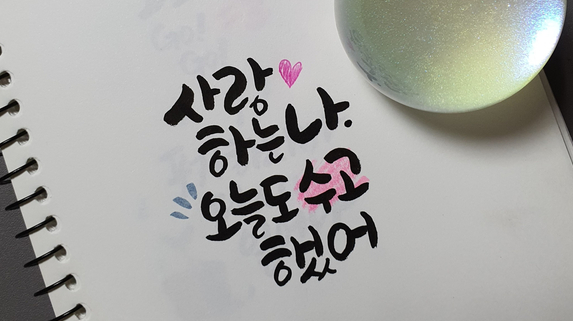 사랑
하는 나.
오늘도 수고
했어